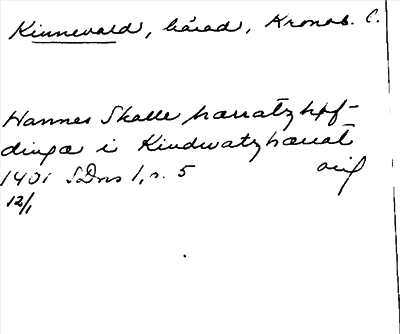 Kinnevald, härad, Kronob. l.
Hannes Skalle hærratzhöf-
dinge i Kindwatzhærat
1401 SDns 1, s. 5 orig
12/1